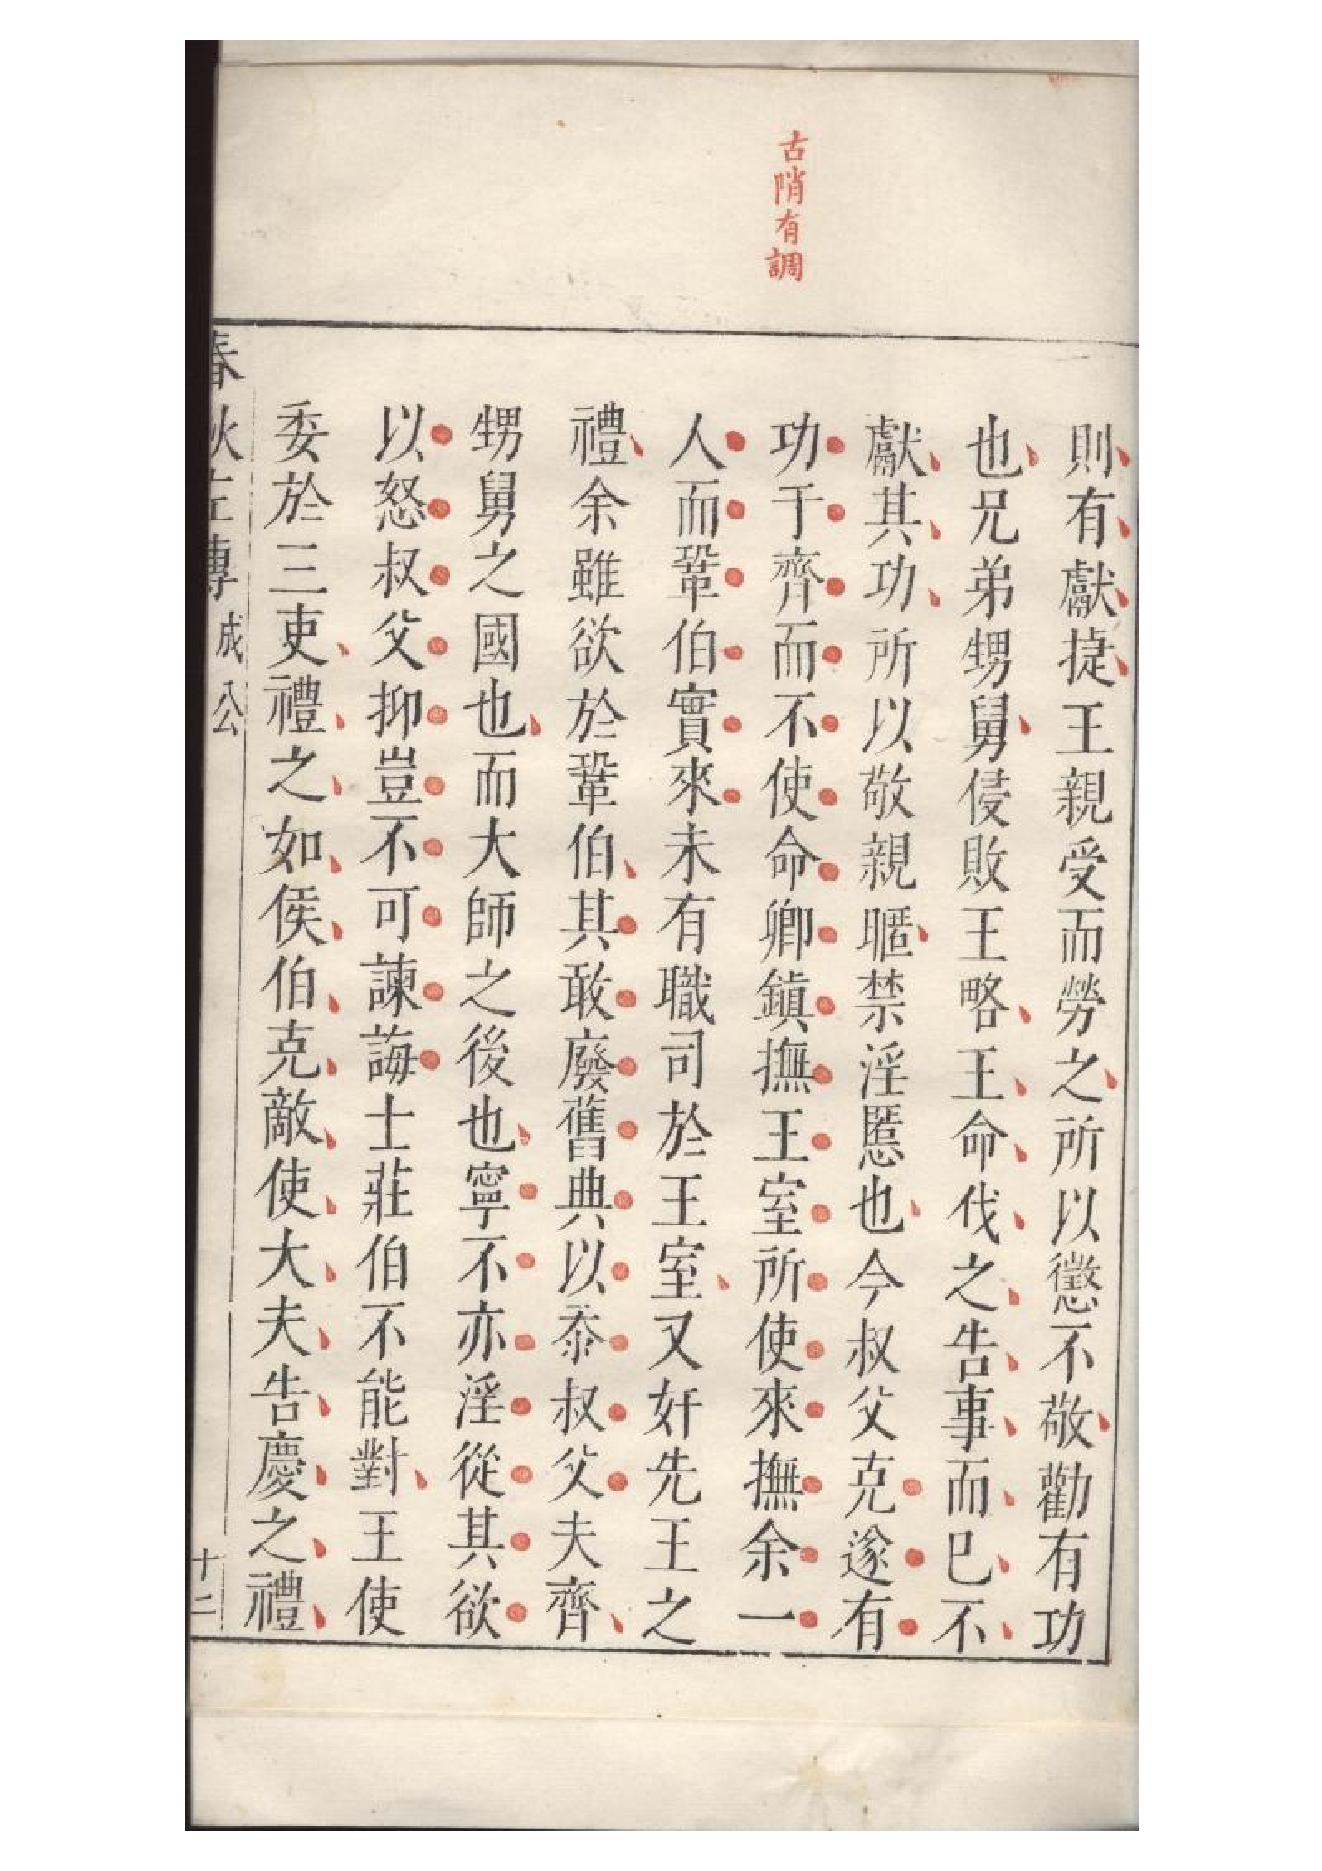 古陗有調
則有獻捷王親受而勞之所以懲不敬勸有功
也兄弟甥舅侵敗王略王命伐之告事而已不
獻其功所以敬親暱禁淫慝也今叔父克遂有
功于齊而不使命卿鎮撫王室所使來撫余一
人而鞏伯實來未有職司於王室又奸先王之
禮余雖欲於鞏伯其敢廢舊典以忝叔父夫齊
甥舅之國也而大師之後也寧不亦淫從其欲
以怒叔父抑豈不可諫誨士莊伯不能對王使
委於三吏禮之如侯伯克敵使大夫告慶之禮
春秋左傳 成公 十二